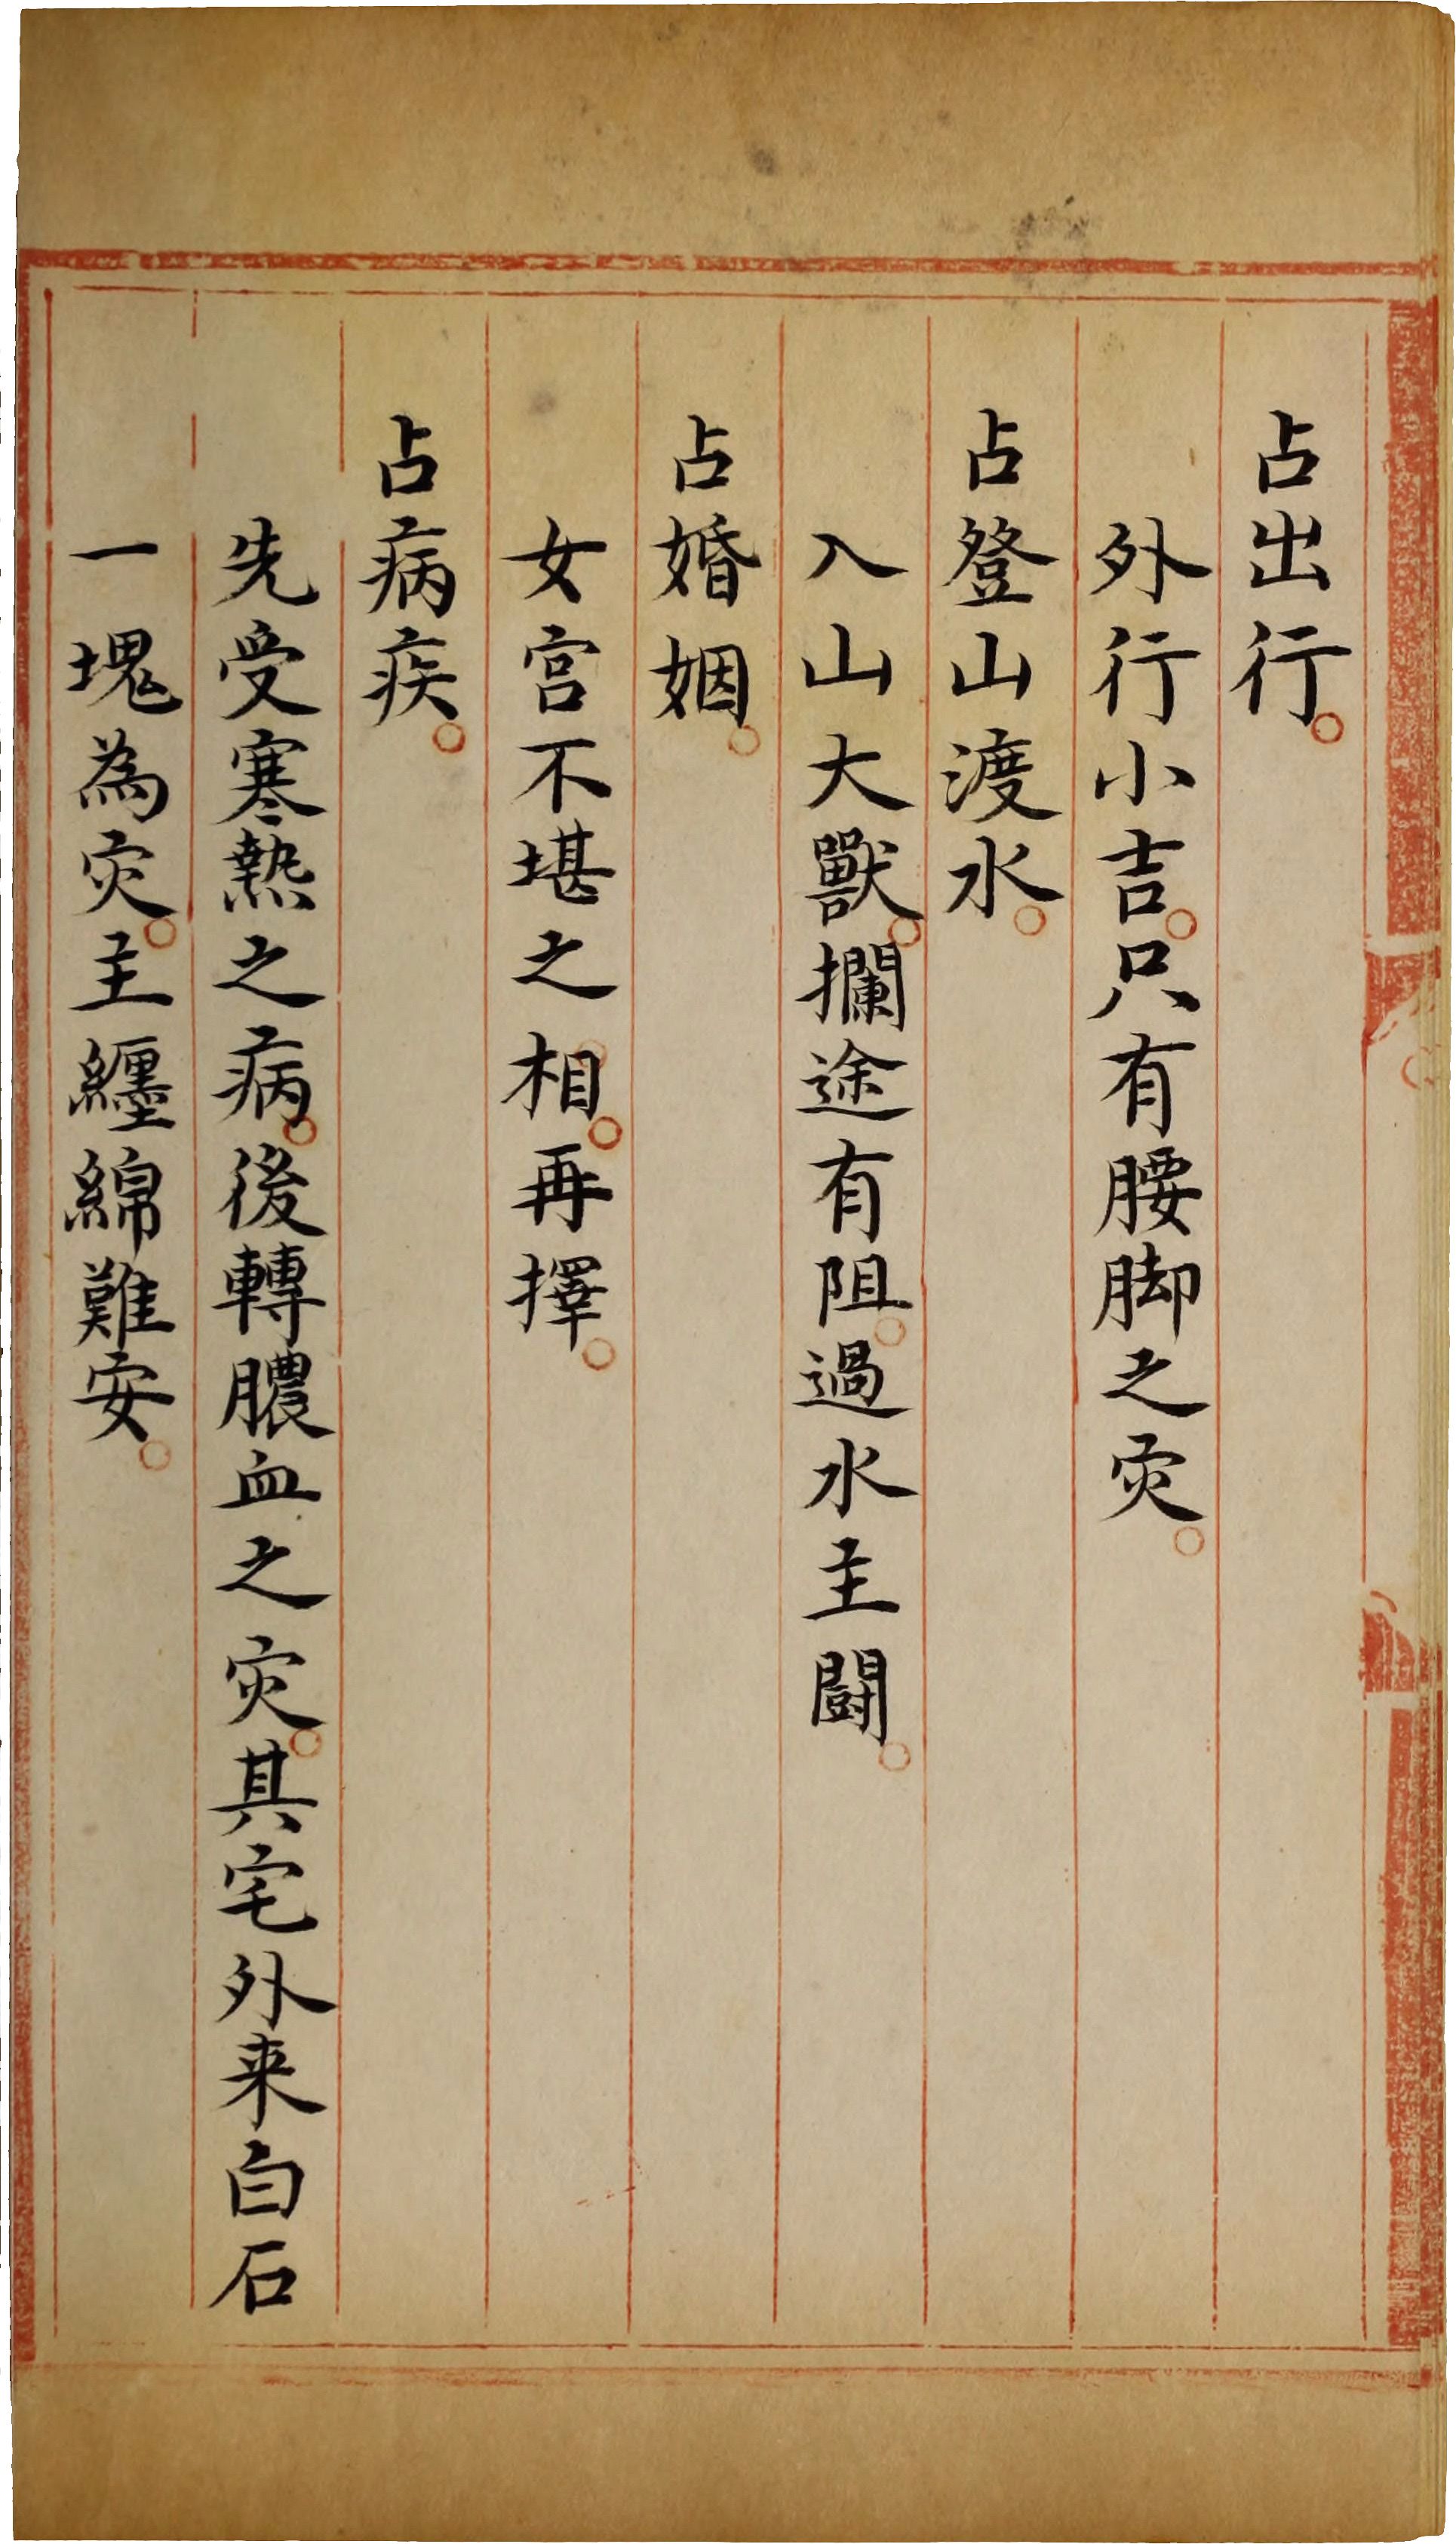 占出行。
外行小吉。只有腰脚之灾。
占登山渡水。
入山大獸。攔途有阻。過水主鬪。
占婚姻。
女宫不堪之相。再擇。
占病疾。
先受寒熱之病。後轉膿血之灾。其宅外来白石
一塊為灾。主纏綿難安。